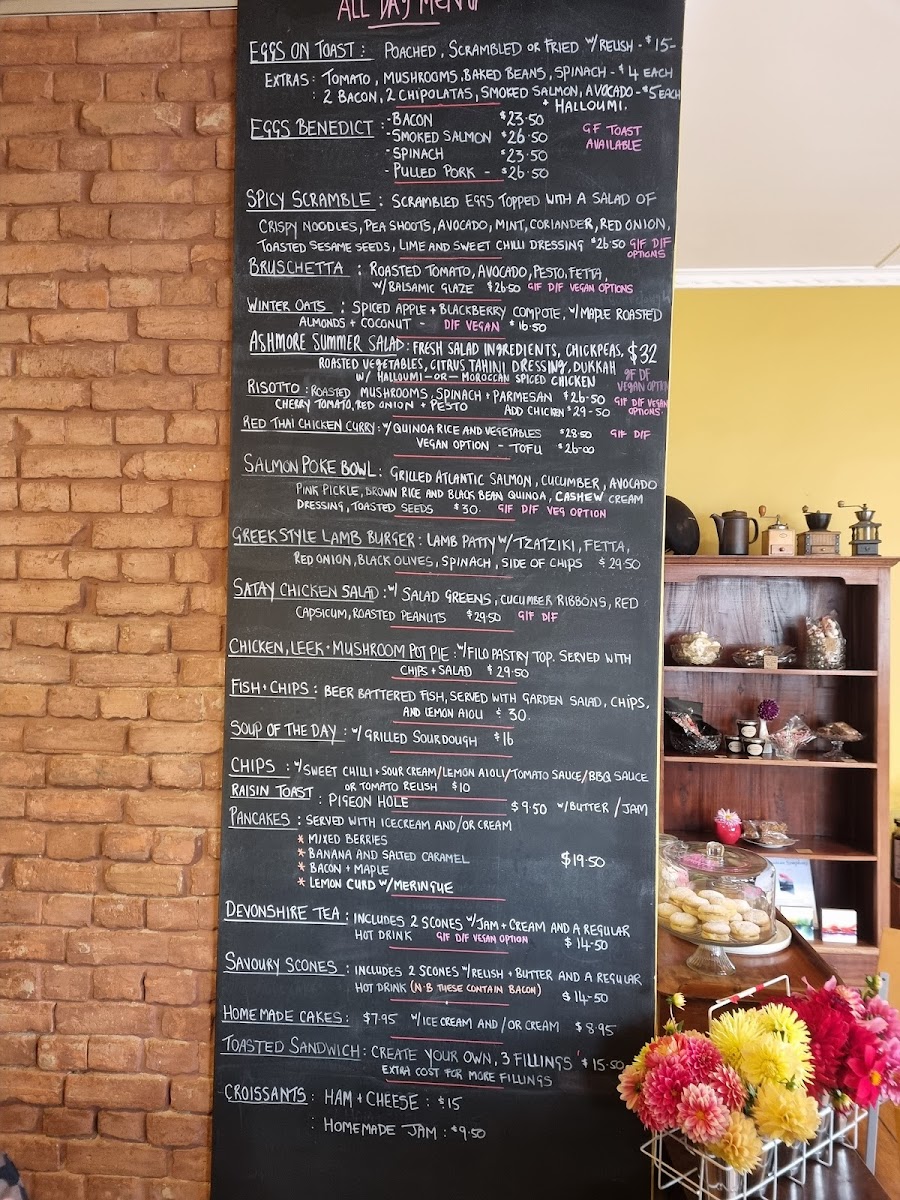 ALL DAY MENU
EGGS ON TOAST : POACHED, SCRAMBLED OR FRIED W/ RELISH - $15-
EXTRAS : TOMATO, MUSHROOMS, BAKED BEANS, SPINACH - $4 EACH
: 2 BACON, 2 CHIPOLATAS, SMOKED SALMON, AVOCADO - $5 EACH
+ HALLOUMI.
EGGS BENEDICT : - BACON $23.50
- SMOKED SALMON $26.50
- SPINACH $23.50
- PULLED PORK - $26.50
GF TOAST
AVAILABLE
SPICY SCRAMBLE : SCRAMBLED EGGS TOPPED WITH A SALAD OF
CRISPY NOODLES, PEA SHOOTS, AVOCADO, MINT, CORIANDER, RED ONION,
TOASTED SESAME SEEDS, LIME AND SWEET CHILLI DRESSING $26.50 G/F D/F
OPTIONS
BRUSCHETTA : ROASTED TOMATO, AVOCADO, PESTO, FETTA,
W/ BALSAMIC GLAZE $26.50 G/F D/F VEGAN OPTIONS
WINTER OATS : SPICED APPLE + BLACKBERRY COMPOTE, W/ MAPLE ROASTED
ALMONDS + COCONUT - D/F VEGAN $16.50
ASHMORE SUMMER SALAD : FRESH SALAD INGREDIENTS, CHICKPEAS, $32
ROASTED VEGETABLES, CITRUS TAHINI DRESSING, DUKKAH
W/ HALLOUMI - OR - MOROCCAN SPICED CHICKEN
GF DF
VEGAN OPTION
RISOTTO : ROASTED MUSHROOMS, SPINACH + PARMESAN $26.50 G/F D/F VEGAN
CHERRY TOMATO, RED ONION + PESTO ADD CHICKEN $29-50 OPTIONS
RED THAI CHICKEN CURRY : W/ QUINOA RICE AND VEGETABLES $28.50 G/F D/F
VEGAN OPTION - TOFU $26-00
SALMON POKE BOWL : GRILLED ATLANTIC SALMON, CUCUMBER, AVOCADO
PINK PICKLE, BROWN RICE AND BLACK BEAN QUINOA, CASHEW CREAM
DRESSING, TOASTED SEEDS $30. G/F D/F VEG OPTION
GREEK STYLE LAMB BURGER : LAMB PATTY W/ TZATZIKI, FETTA,
RED ONION, BLACK OLIVES, SPINACH, SIDE OF CHIPS $29.50
SATAY CHICKEN SALAD : W/ SALAD GREENS, CUCUMBER RIBBONS, RED
CAPSICUM, ROASTED PEANUTS $29.50 G/F D/F
CHICKEN, LEEK + MUSHROOM POT PIE : W/ FILO PASTRY TOP. SERVED WITH
CHIPS + SALAD $29.50
FISH + CHIPS : BEER BATTERED FISH, SERVED WITH GARDEN SALAD, CHIPS,
AND LEMON AIOLI $30.
SOUP OF THE DAY : W/ GRILLED SOURDOUGH $16
CHIPS : W/ SWEET CHILLI + SOUR CREAM/LEMON AIOLI/TOMATO SAUCE/BBQ SAUCE
OR TOMATO RELISH $10
RAISIN TOAST : PIGEON HOLE $9.50 W/ BUTTER / JAM
PANCAKES : SERVED WITH ICECREAM AND/OR CREAM
* MIXED BERRIES
* BANANA AND SALTED CARAMEL $19.50
* BACON + MAPLE
* LEMON CURD W/ MERINGUE
DEVONSHIRE TEA : INCLUDES 2 SCONES W/ JAM + CREAM AND A REGULAR
HOT DRINK G/F D/F VEGAN OPTION $14-50
SAVOURY SCONES : INCLUDES 2 SCONES W/ RELISH + BUTTER AND A REGULAR
HOT DRINK (N.B THESE CONTAIN BACON) $14-50
HOMEMADE CAKES : $7.95 W/ ICE CREAM AND / OR CREAM $8.95
TOASTED SANDWICH : CREATE YOUR OWN, 3 FILLINGS $15.50
EXTRA COST FOR MORE FILLINGS
CROISSANTS : HAM + CHEESE : $15
: HOMEMADE JAM : $9.50